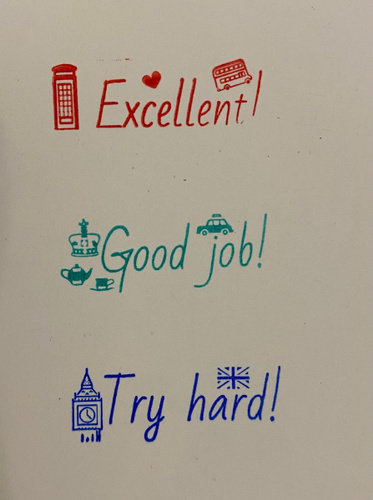 Excellent!
Good job!
Try hard!